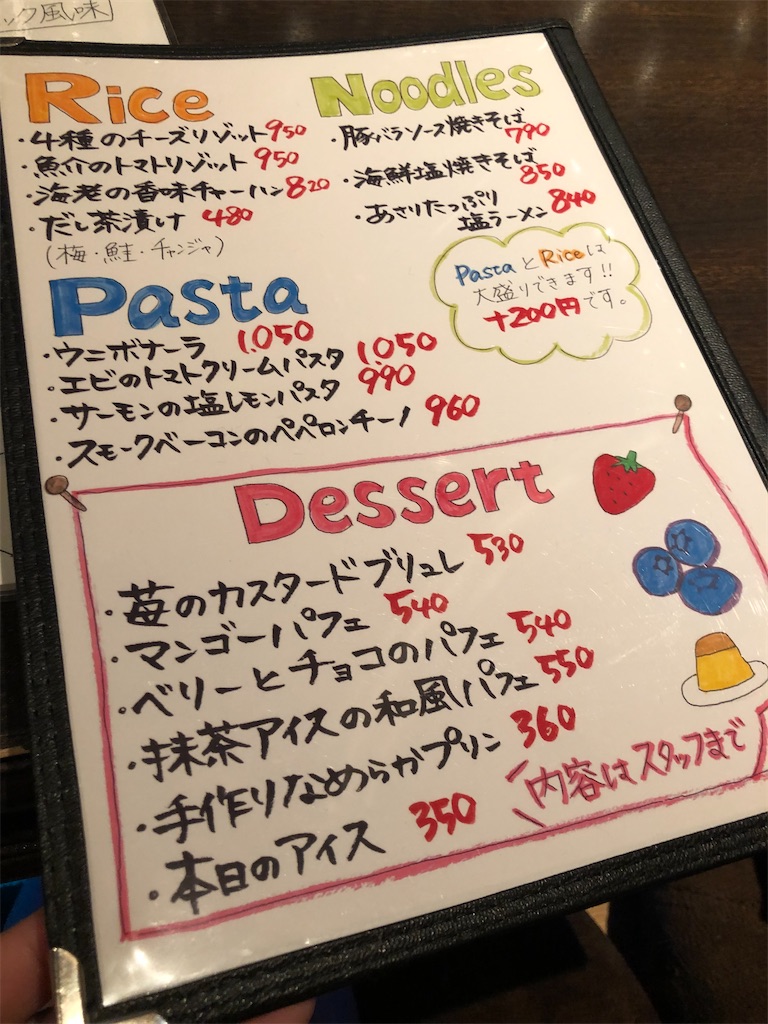 ック風味
Rice
・4種のチーズリゾット 950
・魚介のトマトリゾット 950
・海老の香味チャーハン 820
・だし茶漬け 480
(梅・鮭・チャンジャ)
Noodles
・豚バラソース焼きそば 790
・海鮮塩焼きそば 850
・あさりたっぷり
塩ラーメン 840
PastaとRiceは
大盛りできます!!
+200円です。
Pasta
・ウニボナーラ 1,050
・エビのトマトクリームパスタ 1,050
・サーモンの塩レモンパスタ 990
・スモークベーコンのペペロンチーノ 960
Dessert
・苺のカスタードブリュレ 530
・マンゴーパフェ 540
・ベリーとチョコのパフェ 540
・抹茶アイスの和風パフェ 550
・手作りなめらかプリン 360
・本日のアイス 350
内容はスタッフまで